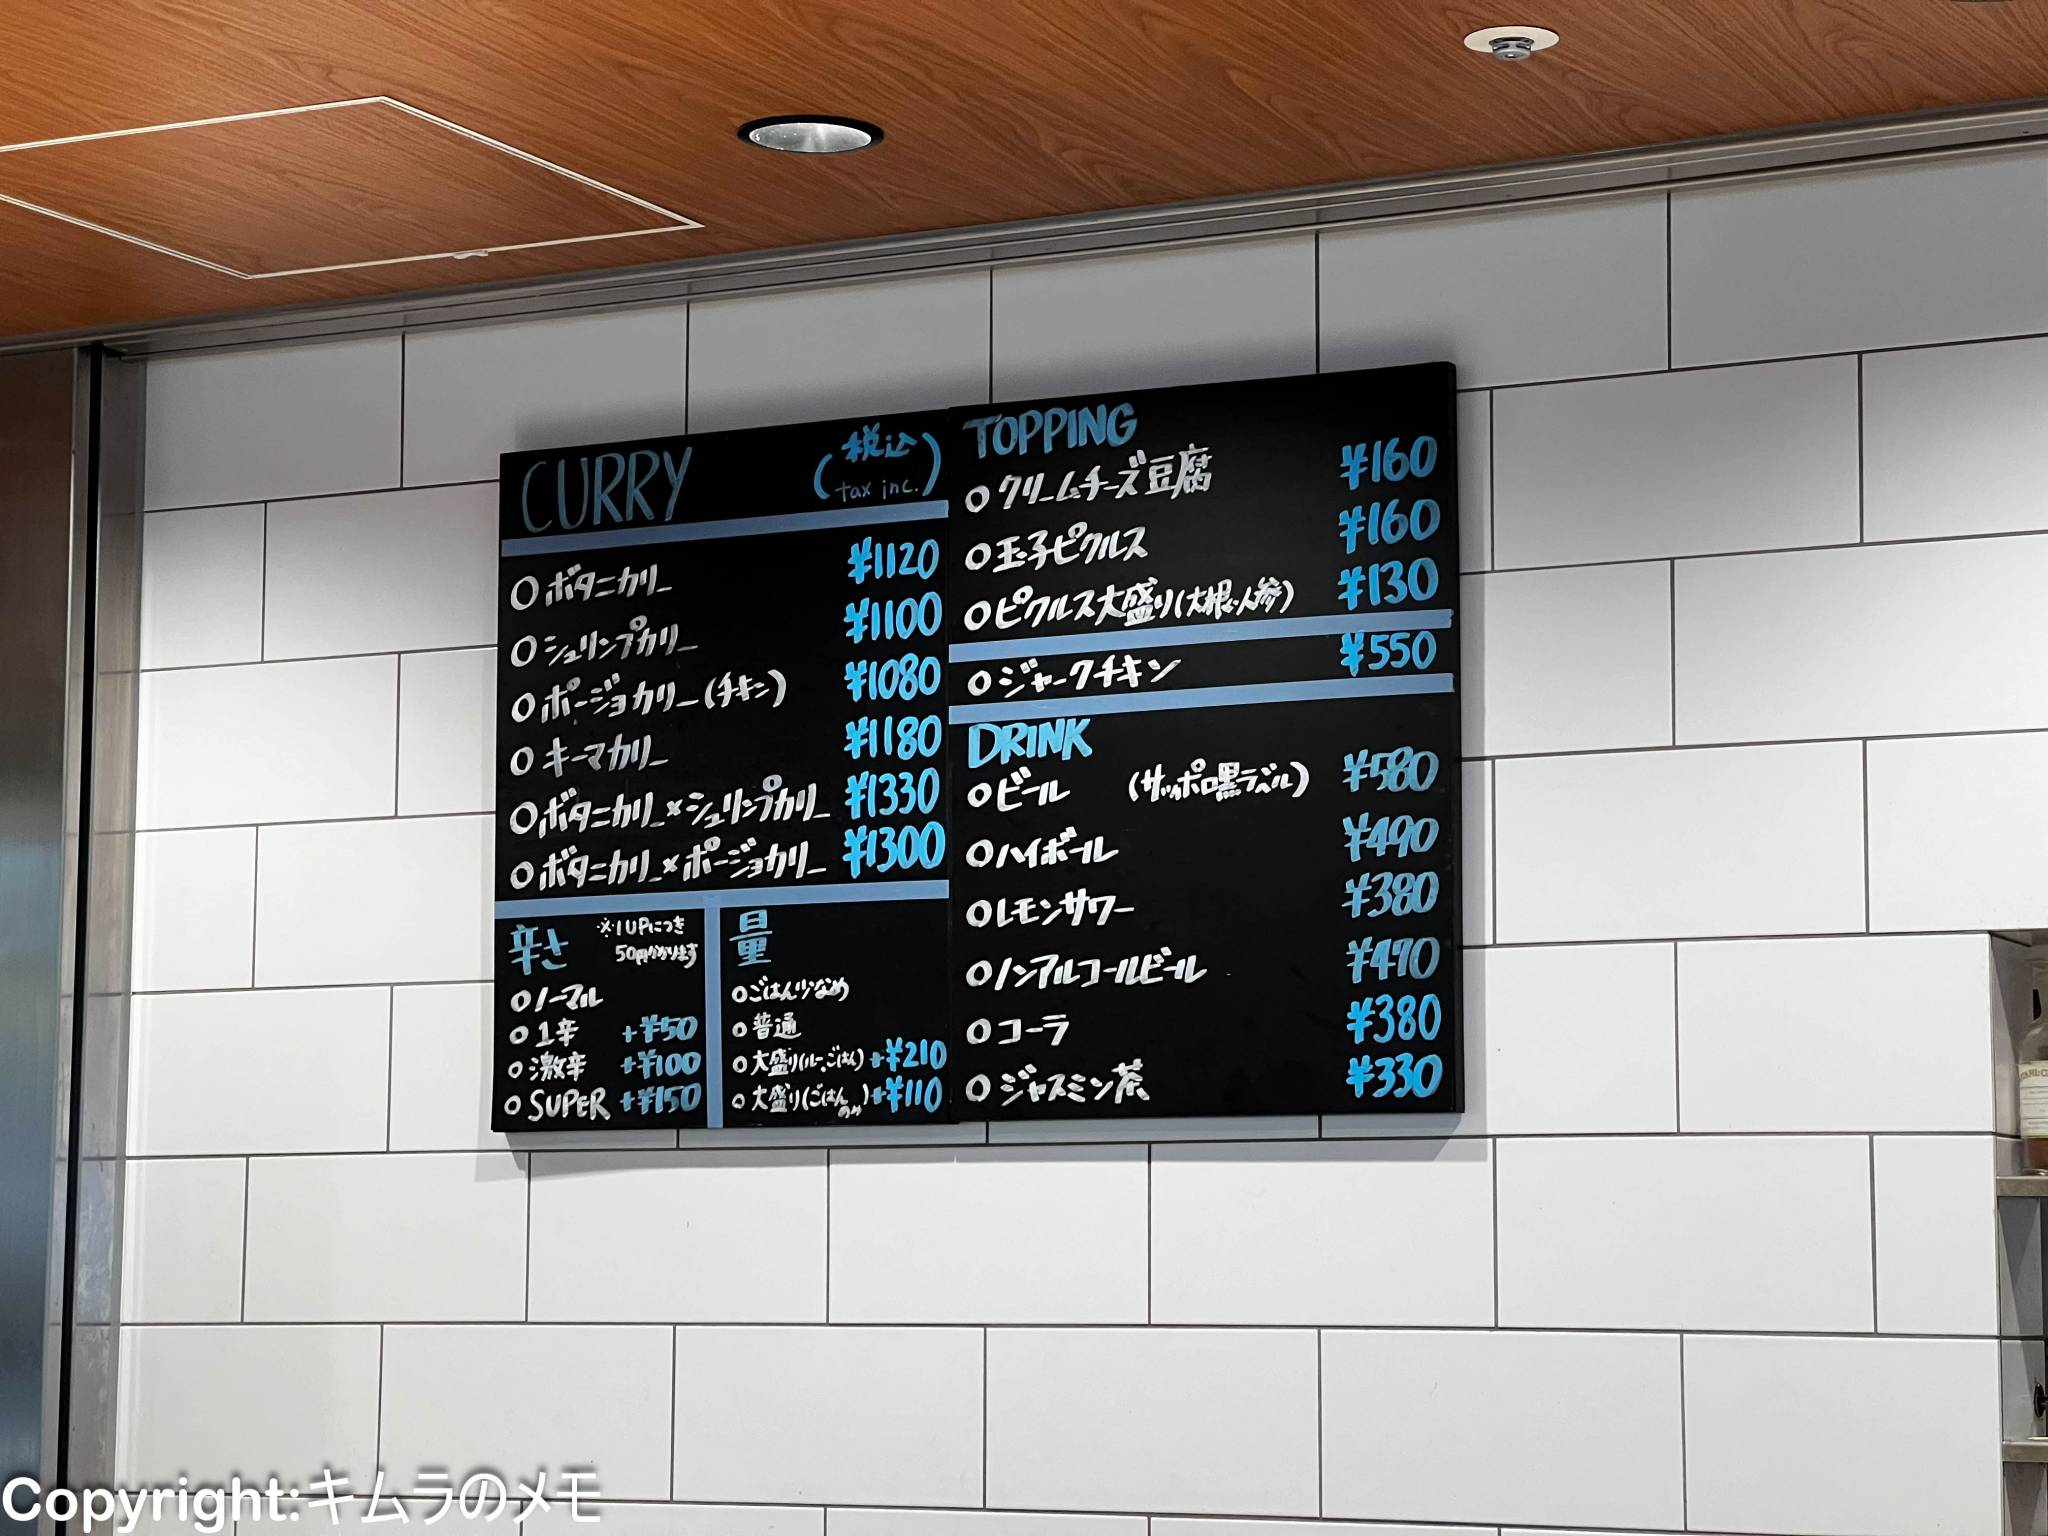 CURRY
(税込
tax inc.)
○ボタニカリー ¥1120
○シュリンプカリー ¥1100
○ポージョカリー(チキン) ¥1080
○キーマカリー ¥1180
○ボタニカリー×シュリンプカリー ¥1330
○ボタニカリー×ポージョカリー ¥1300
辛さ ※1UPにつき
50円かかります
○ノーマル
○1辛 +¥50
○激辛 +¥100
○SUPER +¥150
量
○ごはん少なめ
○普通
○大盛り(ルー、ごはん) +¥210
○大盛り(ごはんのみ) +¥110
TOPPING
○クリームチーズ豆腐 ¥160
○玉子ピクルス ¥160
○ピクルス大盛り(大根・人参) ¥130
○ジャークチキン ¥550
DRINK
○ビール (サッポロ黒ラベル) ¥580
○ハイボール ¥490
○レモンサワー ¥380
○ノンアルコールビール ¥470
○コーラ ¥380
○ジャスミン茶 ¥330
Copyright:キムラのメモ